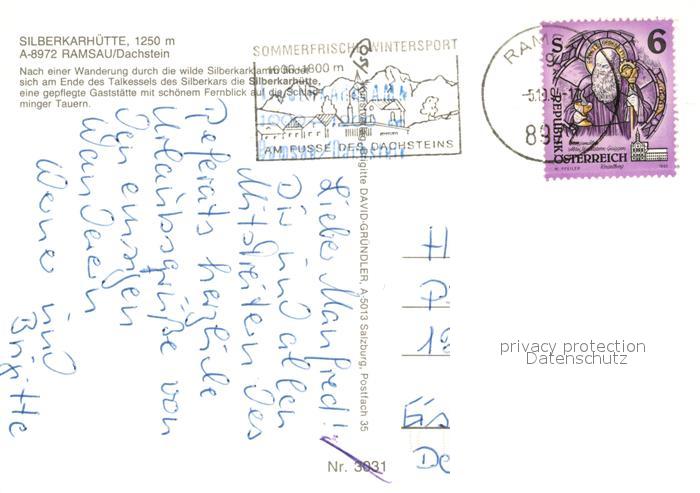 SILBERKARHÜTTE, 1250 m
A-8972 RAMSAU/Dachstein
Nach einer Wanderung durch die wilde Silberkarklamm findet
sich am Ende des Talkessels des Silberkars die Silberkarhütte,
eine gepflegte Gaststätte mit schönem Fernblick auf die Schlad-
minger Tauern.
SOMMERFRISCHE WINTERSPORT
1000-1800 m
AM FUSSE DES DACHSTEINS
RAM
8972
6 S
REPUBLIK
ÖSTERREICH
Lieber Manfred!
Dir und allen
Mitstreitern des
Referats herzliche
Urlaubsgrüße von
Den einsamen
Wanderern
Werner und
Brigitte
Brigitte DAVID-GRÜNDLER, A-5013 Salzburg, Postfach 35
Nr. 3031
H
19
De
privacy protection
Datenschutz